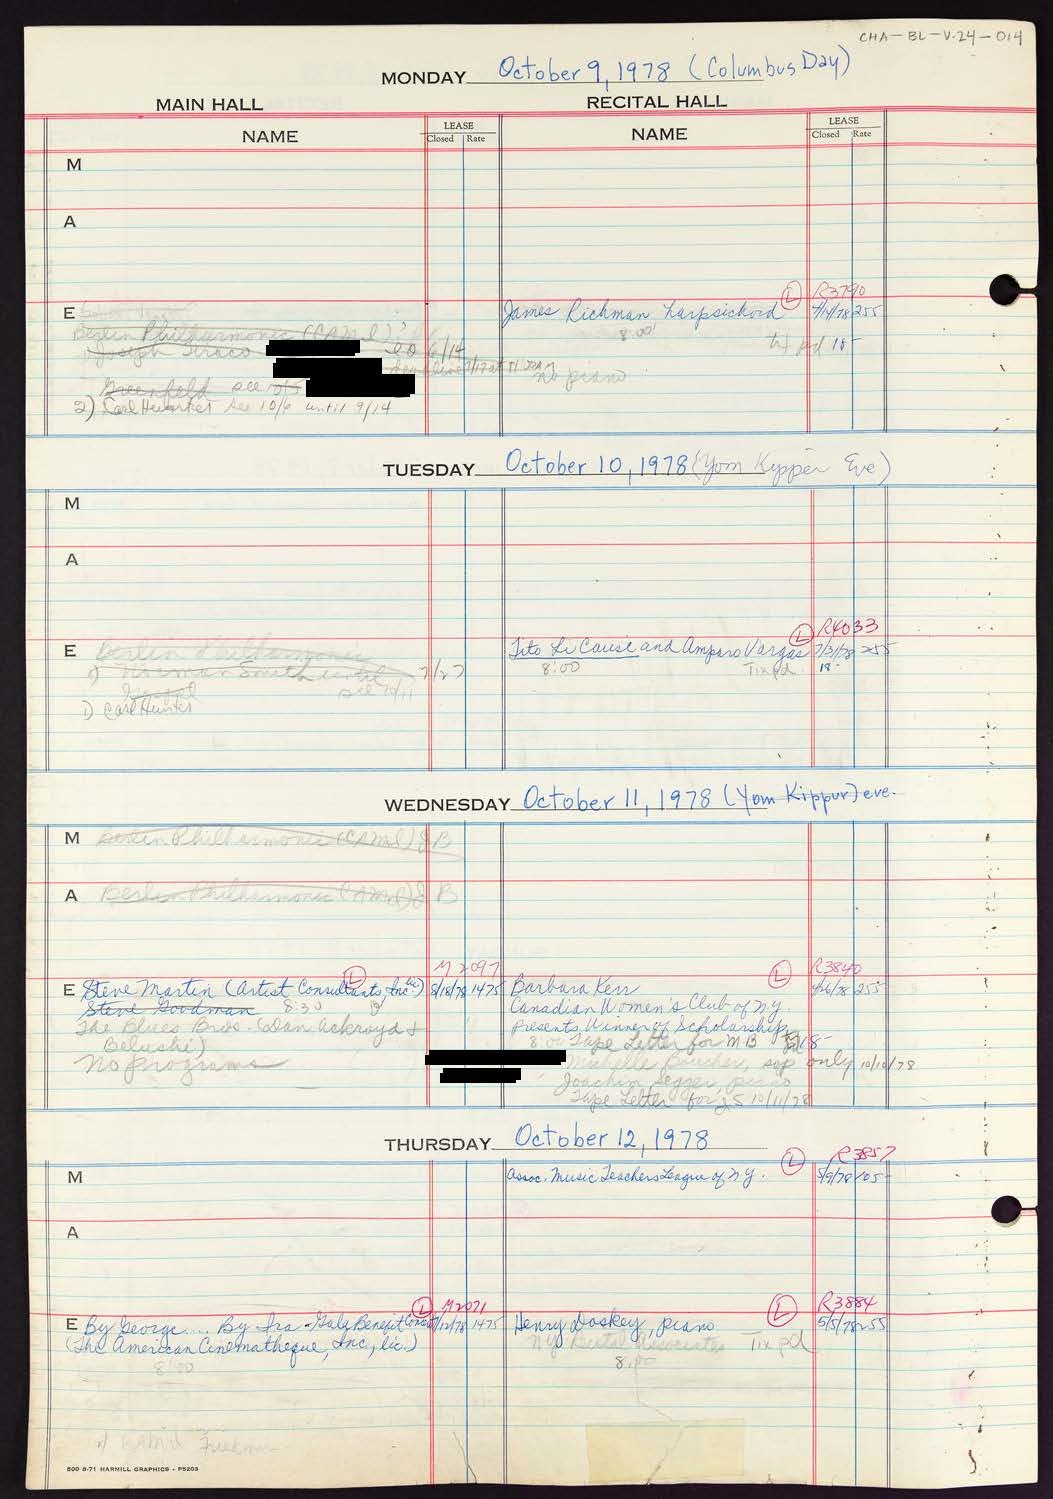 CHA-BL-V.24-014
MONDAY October 9, 1978 (Columbus Day)
MAIN HALL RECITAL HALL
NAME LEASE Closed Rate NAME LEASE Closed Rate
M
A
R3790
E James Richman harpsichord (L) 255
Berlin Philharmonic (CAMI)
8:00
6/14
pd 18-
no piano
Greenfeld see 10/5
2) see 10/6 until 9/14
TUESDAY October 10, 1978 (Yom Kipper Eve)
M
A
R4033
E Berlin Philharmonic
Tito Li Causi and Amparo Vargas (L) 7/31/78 255
1) Norman Smith 7/27
8:00 Tix pd. 18-
see 10/11
1) Carl Hunter
WEDNESDAY October 11, 1978 (Yom Kippur) eve.
M Berlin Philharmonic (CAMI) JB
A Berlin Philharmonic (CAMI) JB
M2097 R3840
E Steve Martin (Artist Consultants, Inc. lic) (L) 8/18/78 1475 Barbara Kerr (L) 255
Steve Goodman 8:30
Canadian Women's Club of NY.
The Blues Bros. (Dan Ackroyd &
Belushi)
presents Winner of Scholarship
8:00 Tape Letter for MB 18-
No programs
Michelle Boucher, sop only 10/10/78
Joachim Segger, piano
Tape Letter for JS 10/11/78
THURSDAY October 12, 1978
R3857
M Assoc. Music Teachers League of NY. (L) 5/9/78 105-
A
M2071 R3884
E By George... By Ira - Gala Benefit Concert (L) 7/12/78 1475 Henry Doskey, piano (L) 5/5/78 255
(The American Cinematheque, Inc., lic.)
NY Recital Associates Tix pd
8:00 8:00
500 8-71 HARMILL GRAPHICS - P5203